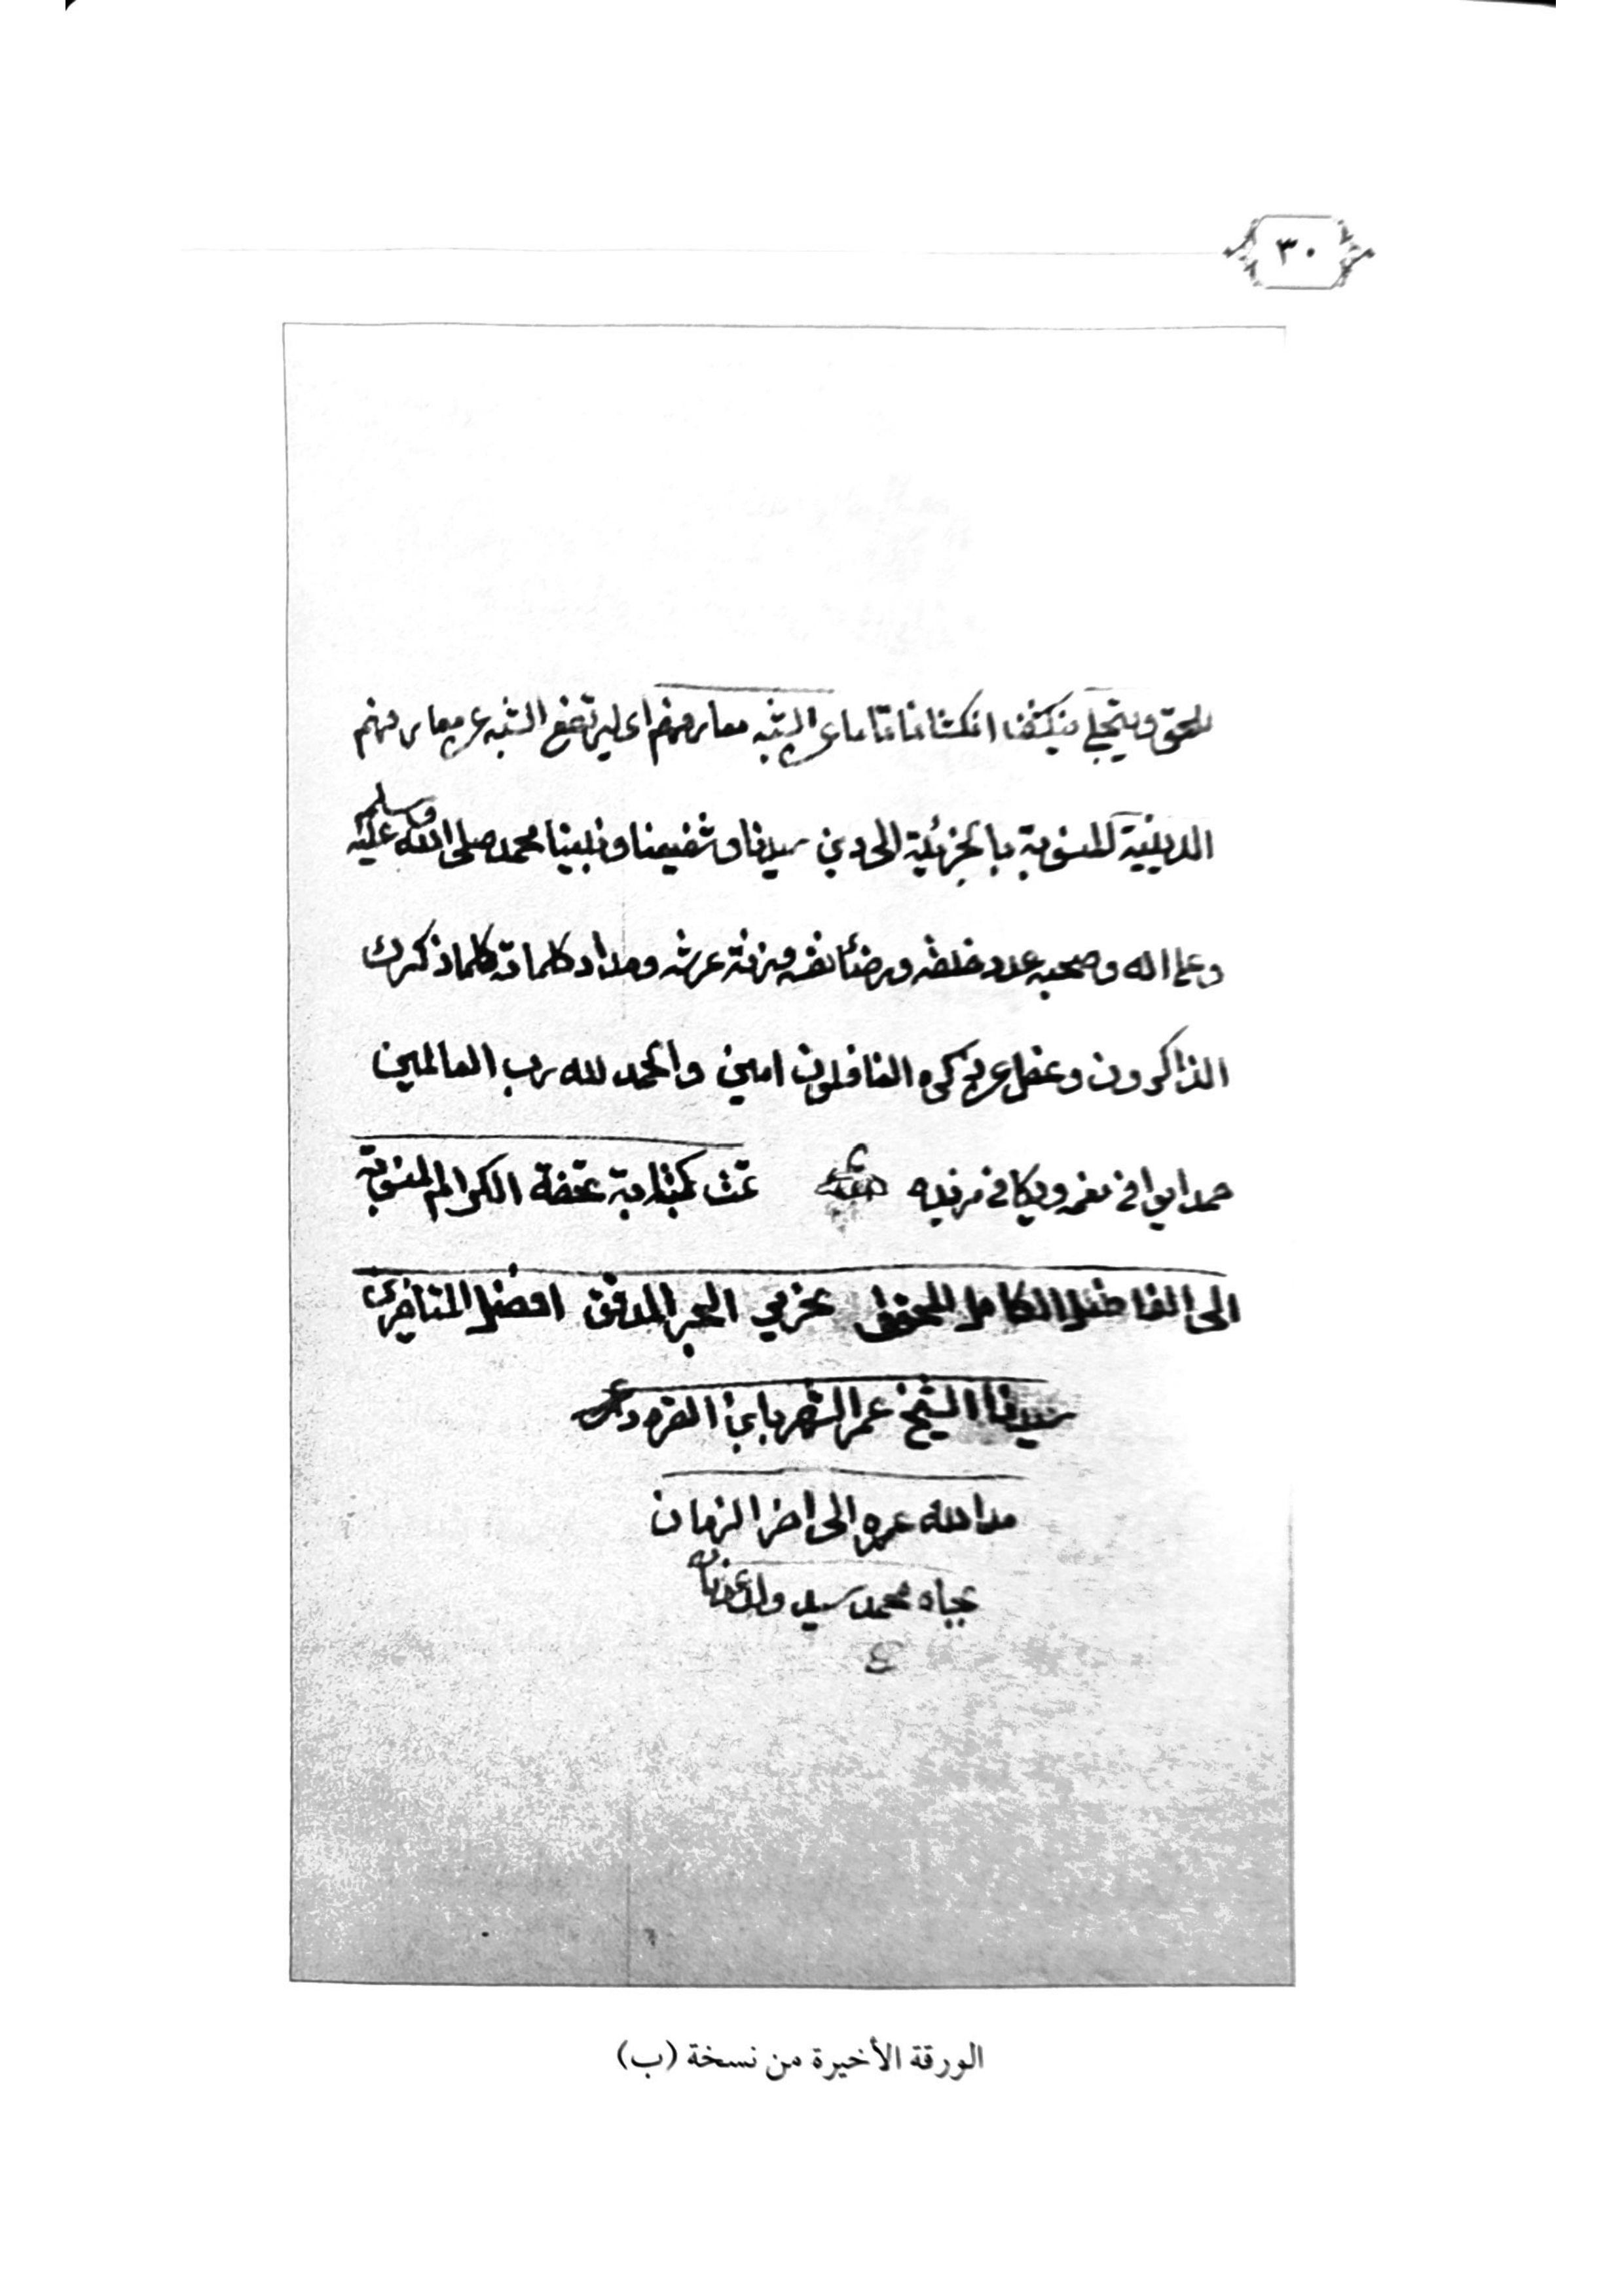 ٣٠
للحق ويتجلي منكشفا انكشافا تاما عن الشبه معارفهم اى ليرتفع الشبه عن معارفهم
الدينية المنسوبة بالجزئية الى دين سيدنا وشفيعنا ونبينا محمد صلى الله عليه وسلم
وعلى اله وصحبه عدد خلقه ورضائفسه وزنة عرشه ومداد كلماته كلما ذكرك
الذاكرون وغفل عن ذكره الغافلون امين والحمد لله رب العالمين
حمدا يوافى نعمه ويكافى مزيده تمت كتابة تحفة الكرام المنسوبة
الى الفاضل الكامل المحقق نحرير الحبر المدقق افضل المتأخرين
سيدنا الشيخ عمر الشهير بابن القره داغى
مد الله عمره الى اخر الزمان
بجاه محمد سيد ولد عدنان
الورقة الأخيرة من نسخة (ب)